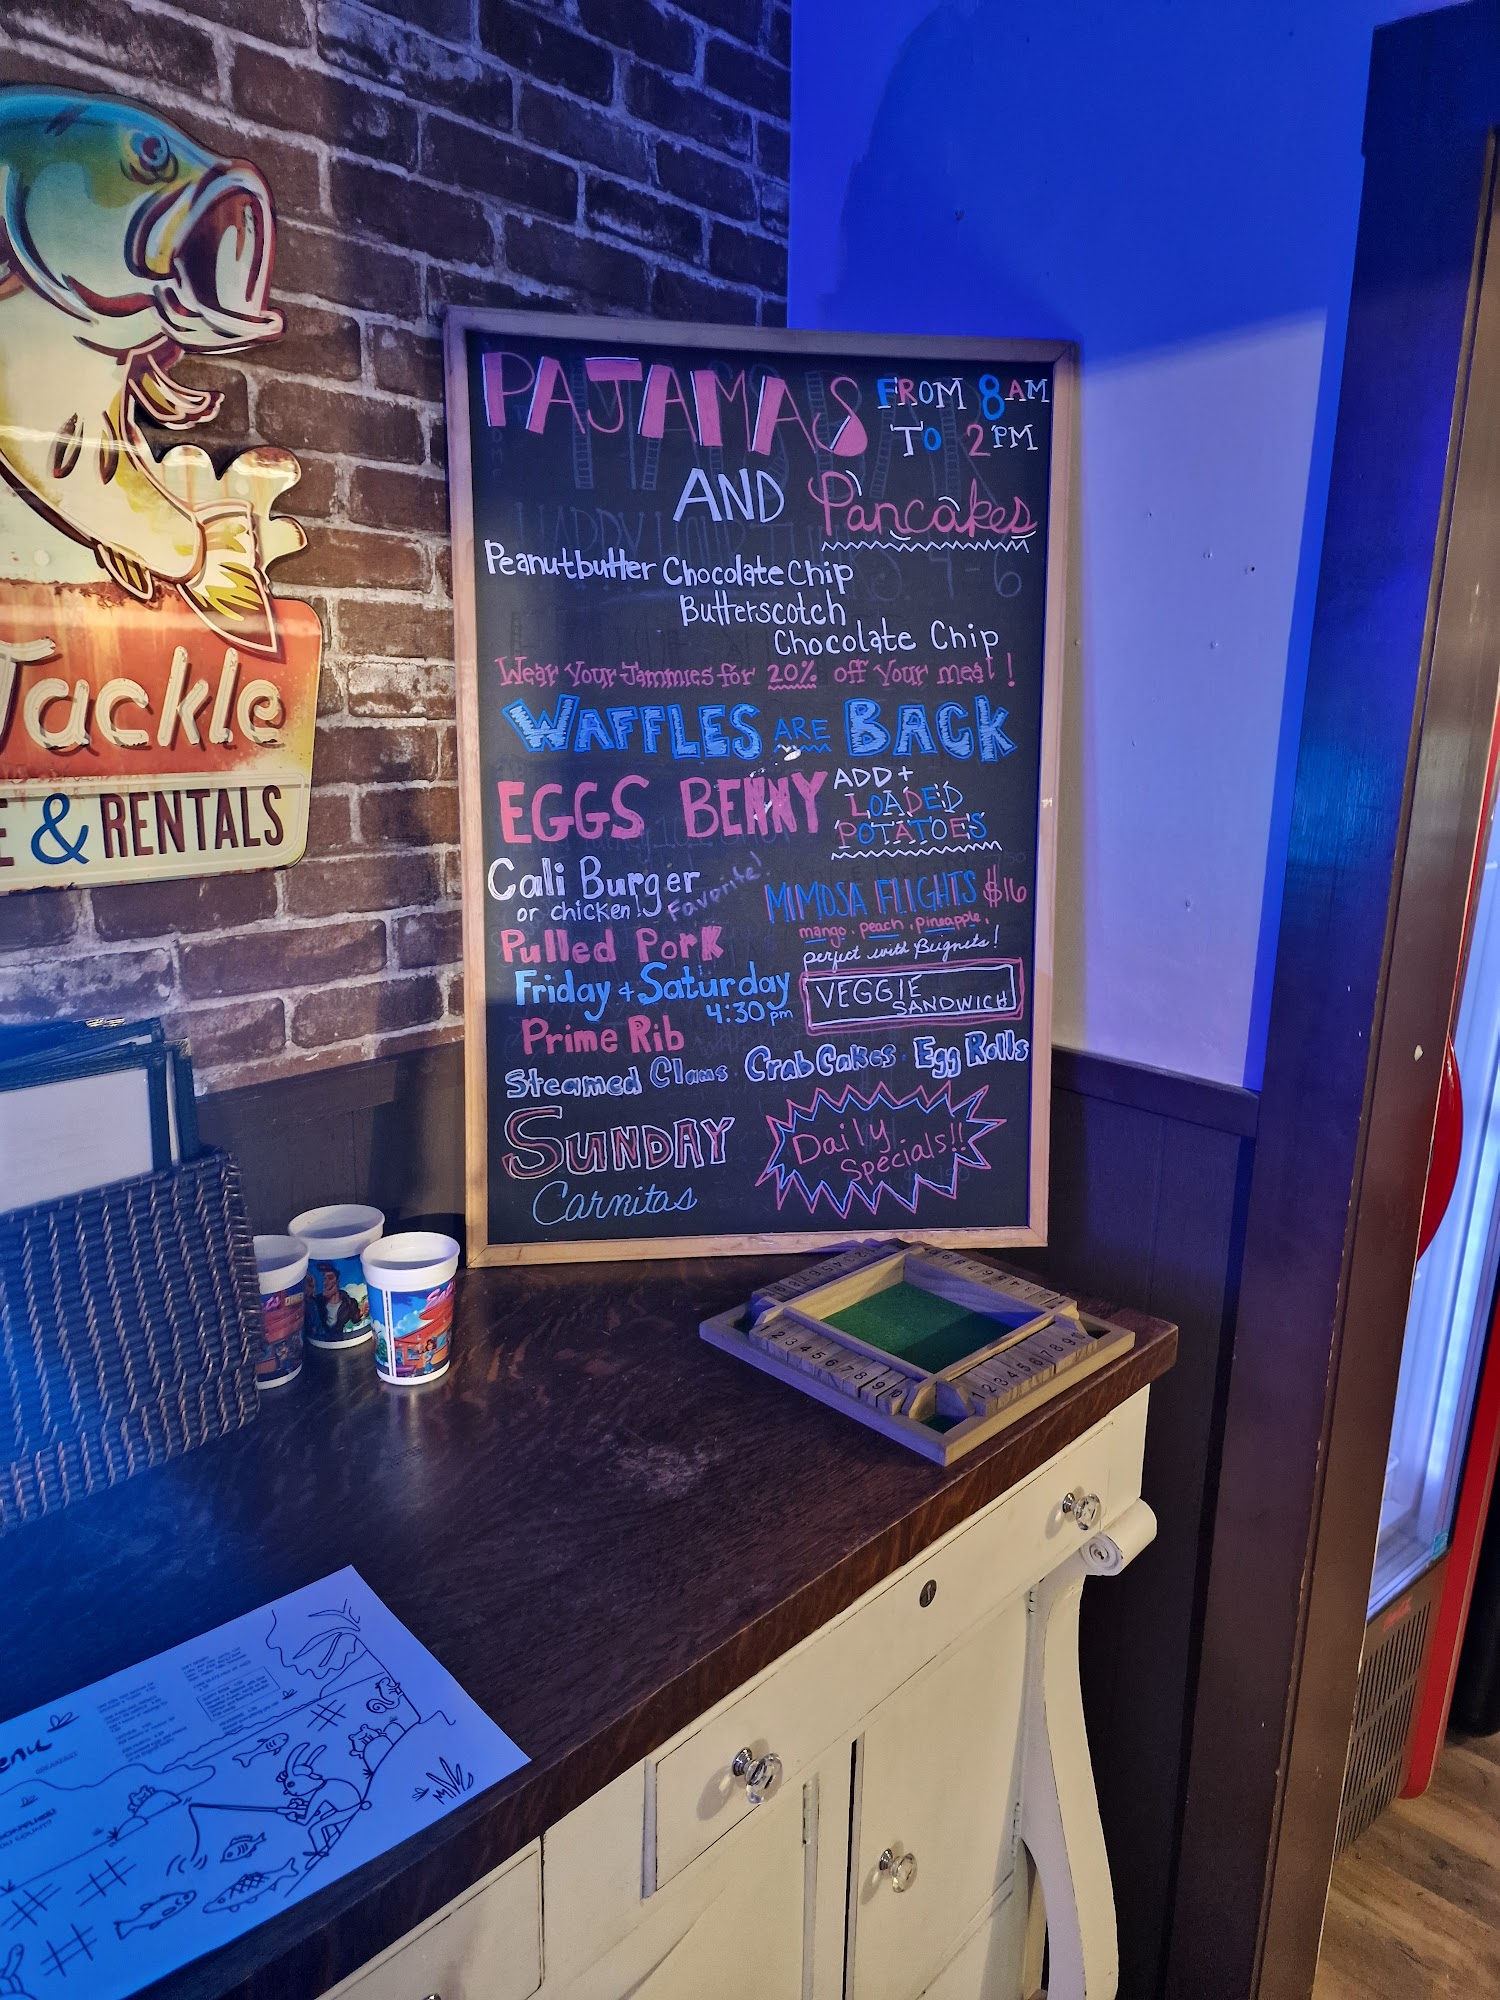 PAJAMAS FROM 8AM
TO 2PM
AND Pancakes
Peanutbutter Chocolate Chip
Butterscotch
Chocolate Chip
Wear Your Jammies for 20% off Your meal!
WAFFLES ARE BACK
EGGS BENNY
ADD+
LOADED
POTATOES
Cali Burger
or chicken! Favorite!
MIMOSA FLIGHTS $16
mango, peach, pineapple,
perfect with Beignets!
Pulled Pork
Friday + Saturday
4:30pm
Prime Rib
VEGGIE
SANDWICH
Steamed Clams. Crab Cakes. Egg Rolls
SUNDAY
Carnitas
Daily
Specials!!
Tackle
& RENTALS
1 2 3 4 5 6 7 8 9 10
1 2 3 4 5 6 7 8 9 10
BREAKFAST